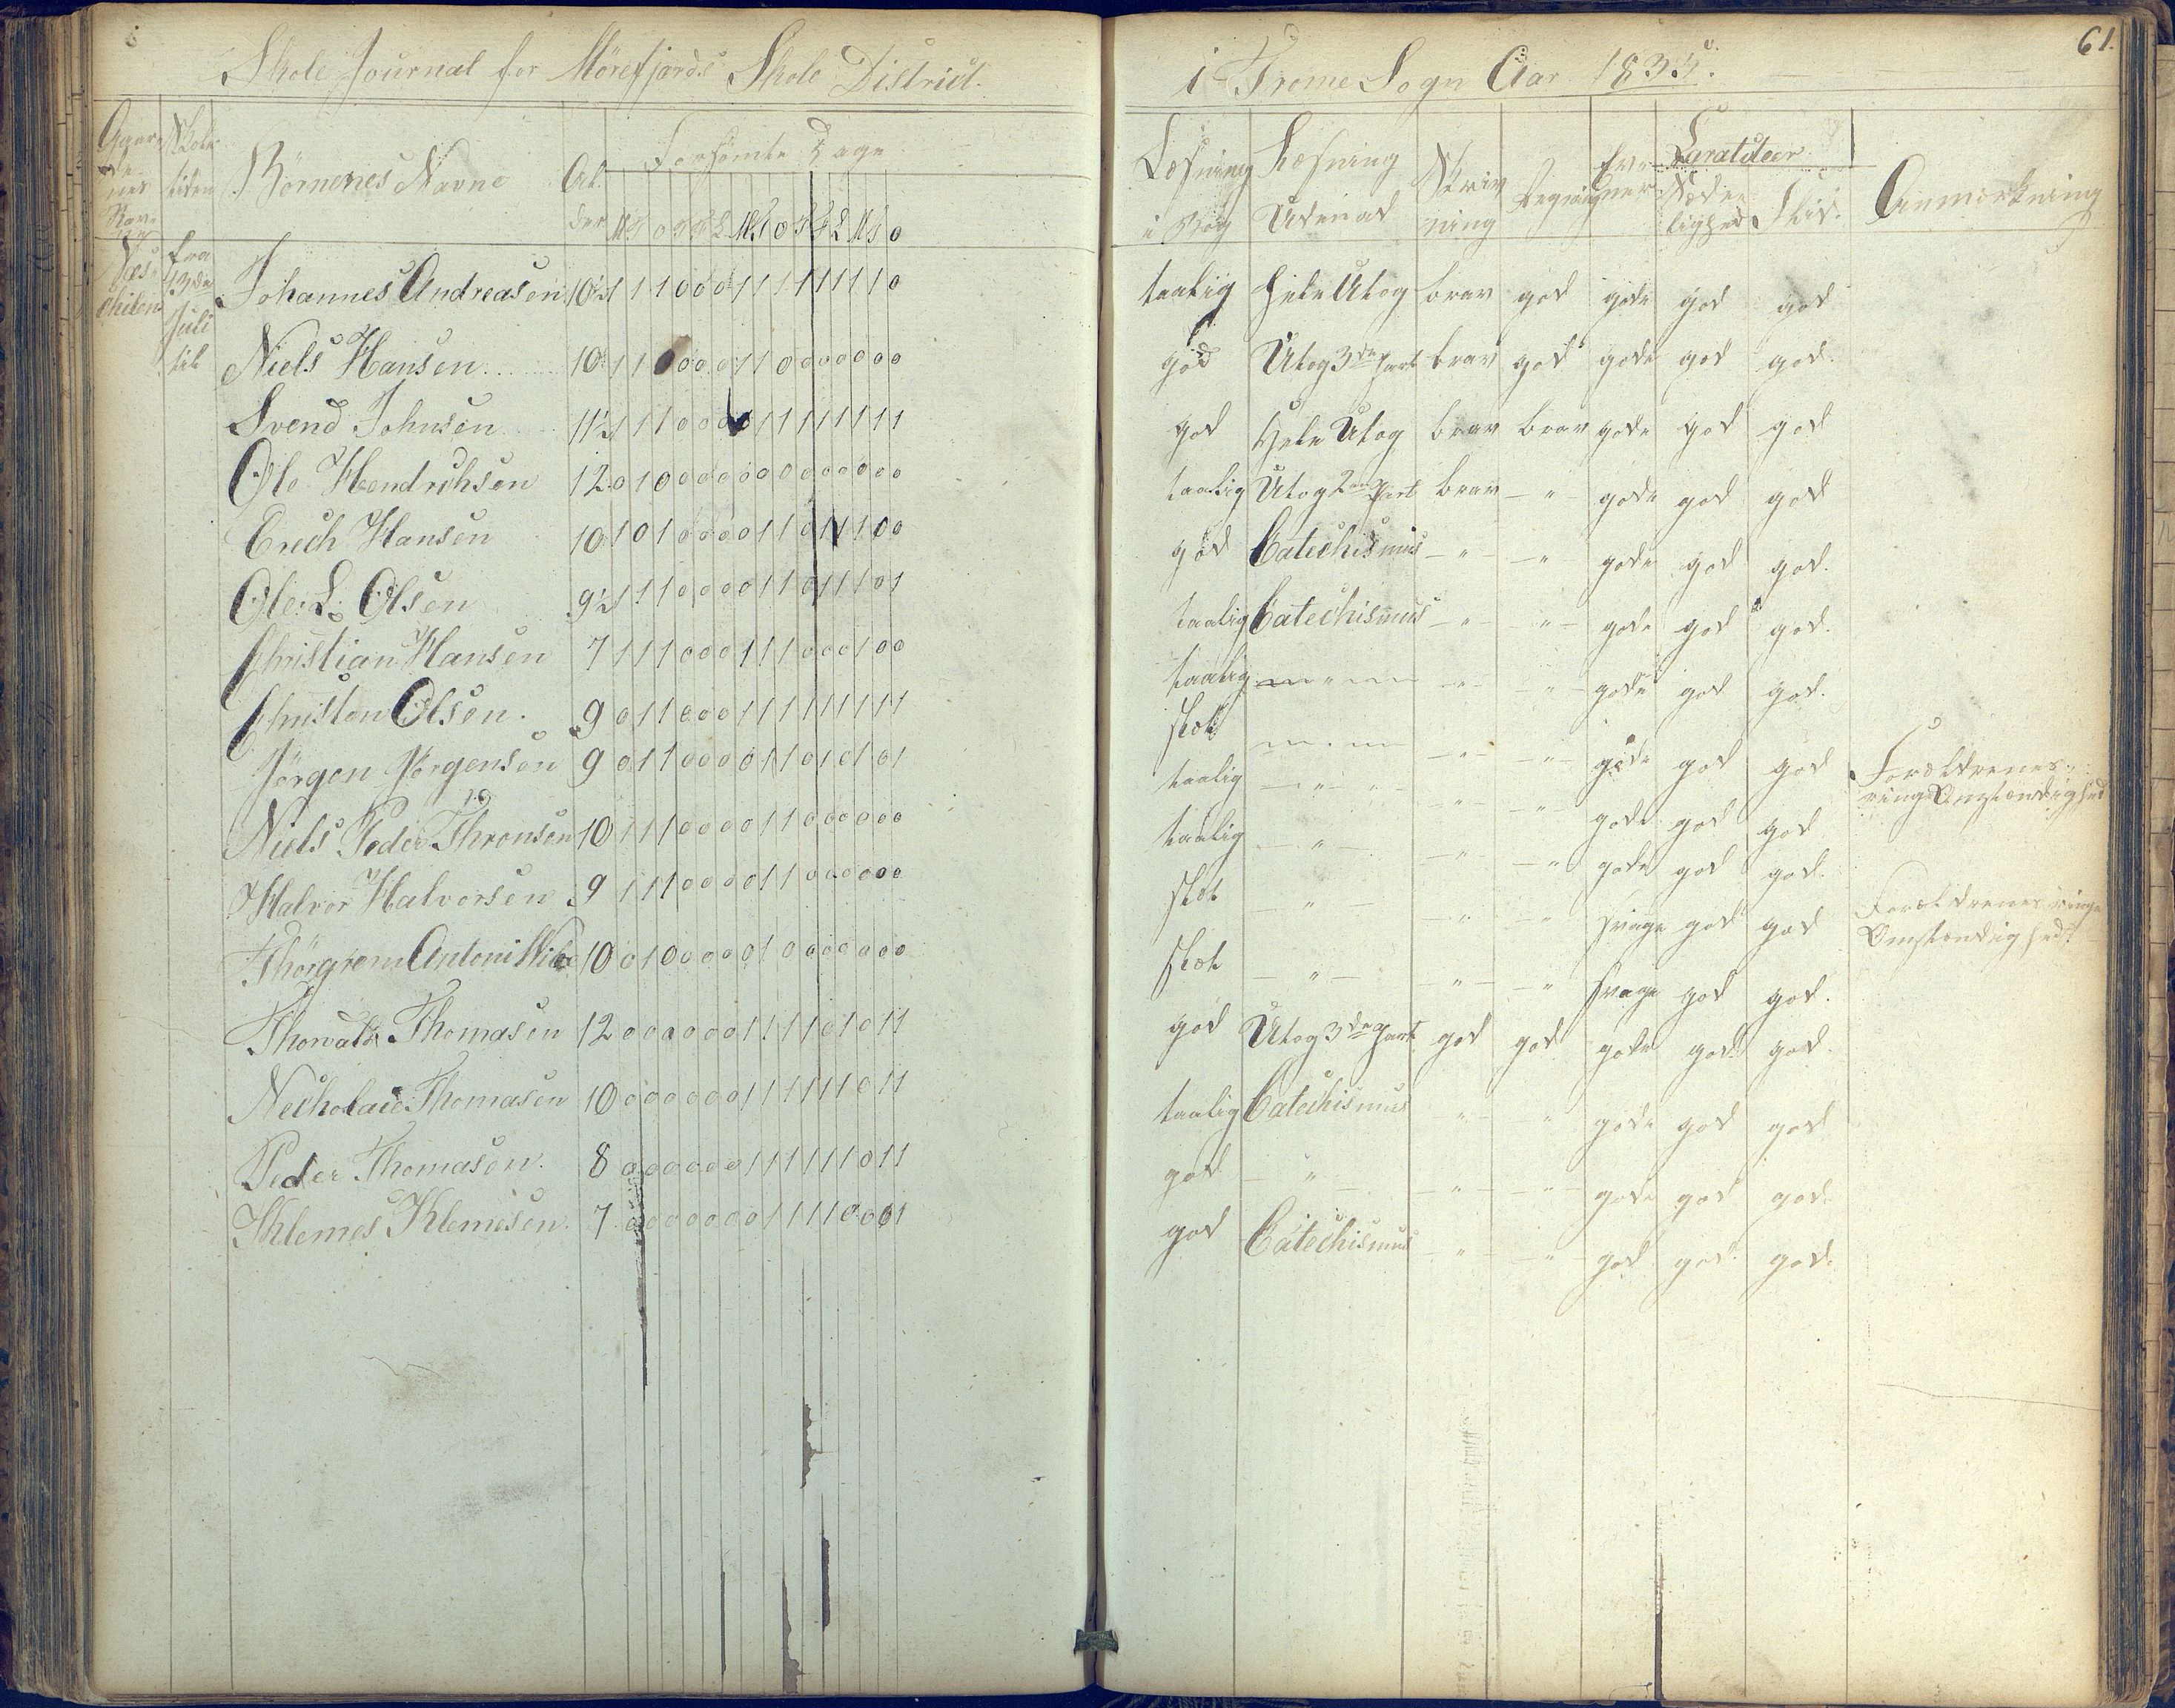 Skole Journal for Mörefjærds Skole District.
i Trome Sogn Aar 1835.
61.
Gaar-
de-
nes
Nav-
ne
Skole
tiden
Börnenes Navne
Al-
der
Forsömte Dage
M T O T F L M T O T F L M T O
Læsning
i Bog
Læsning
Udenad
Skriv
ning
Regning
Ev-
ner
Caracteer
Sæde-
lighed
Flid.
Anmærkning
Næs-
Chilen
fra
13de
Juli
til
Johannes Andreasen 10½ 1 1 1 0 0 0 1 1 1 1 1 1 1 1 0 taalig Hele Utog brav god gode god god
Niels Hansen 10 1 1 0 0 0 0 1 1 0 0 0 0 0 0 0 god Utog 3de Part brav god gode god god.
Svend Johnsen 11½ 1 1 1 0 0 0 1 1 1 1 1 1 1 1 god Hele Utog brav brav gode god god
Ole Hendrichsen 12 0 1 0 0 0 0 0 0 0 0 0 0 0 0 0 taalig Utog 2den Part brav - " - gode god god
Erich Hansen 10 1 0 1 0 0 0 0 1 1 0 1 1 1 0 0 god Catechismus - " - - " - gode god god.
Ole L. Olsen 9½ 1 1 1 0 0 0 0 1 1 0 1 1 1 0 1 taalig Catechismus - " - - " - gode god god.
Christian Hansen 7 1 1 1 0 0 0 1 1 1 0 0 0 1 0 0 taalig - " - - " - - " - gode god god.
Christen Olsen. 9 0 1 1 0 0 0 1 1 1 1 1 1 1 1 1 slet - " - - " - - " - gode god god
Forældrenes
ringe Omstændighed
Jörgen Jörgensen 9 0 1 1 0 0 0 0 1 1 0 1 0 1 0 1 taalig - " - - " - - " - gode god god
Niels Peder Thronsen 10 1 1 1 0 0 0 0 1 1 0 0 0 0 0 0 taalig - " - - " - - " gode god god.
Halvor Halvorsen 9 1 1 1 0 0 0 0 1 1 0 0 0 0 0 0 slet - " - - " - - " - svage god god
Forældrenes ringe
Omstændighed
Thörgrem Antoni 10 0 1 0 0 0 0 0 1 0 0 0 0 0 0 0 slet - " - - " - - " svage god god.
Thorvald Thomasen 12 0 0 0 0 0 0 1 1 1 1 0 1 0 1 1 god Utog 3de Part god god gode god god.
Necholaie Thomasen 10 0 0 0 0 0 0 1 1 1 1 1 1 0 1 1 taalig Catechismus - " - - " - gode god god
Peder Thomasen. 8 0 0 0 0 0 0 1 1 1 1 1 1 0 1 1 god - " - - " - - " - gode god god
Klemes Klemesen. 7 0 0 0 0 0 0 0 1 1 1 1 0 0 0 1 god Catechismus - " - - " - god god god.